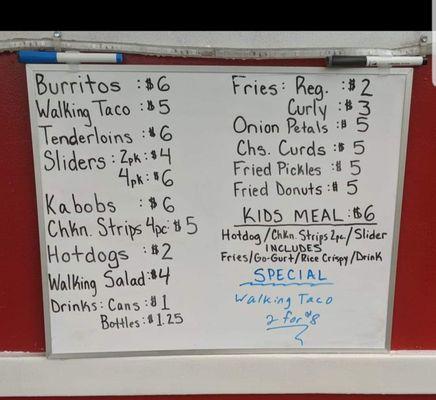 Burritos : $6
Walking Taco : $5
Tenderloins : $6
Sliders : 2pk : $4
4pk : $6
Kabobs : $6
Chkn. Strips 4pc : $5
Hotdogs : $2
Walking Salad : $4
Drinks : Cans : $1
Bottles : $1.25
Fries : Reg. : $2
Curly : $3
Onion Petals : $5
Chs. Curds : $5
Fried Pickles : $5
Fried Donuts : $5
KIDS MEAL : $6
Hotdog/Chkn. Strips 2pc/Slider
INCLUDES
Fries/Go-Gurt/Rice Crispy/Drink
SPECIAL
Walking Taco
2 for $8